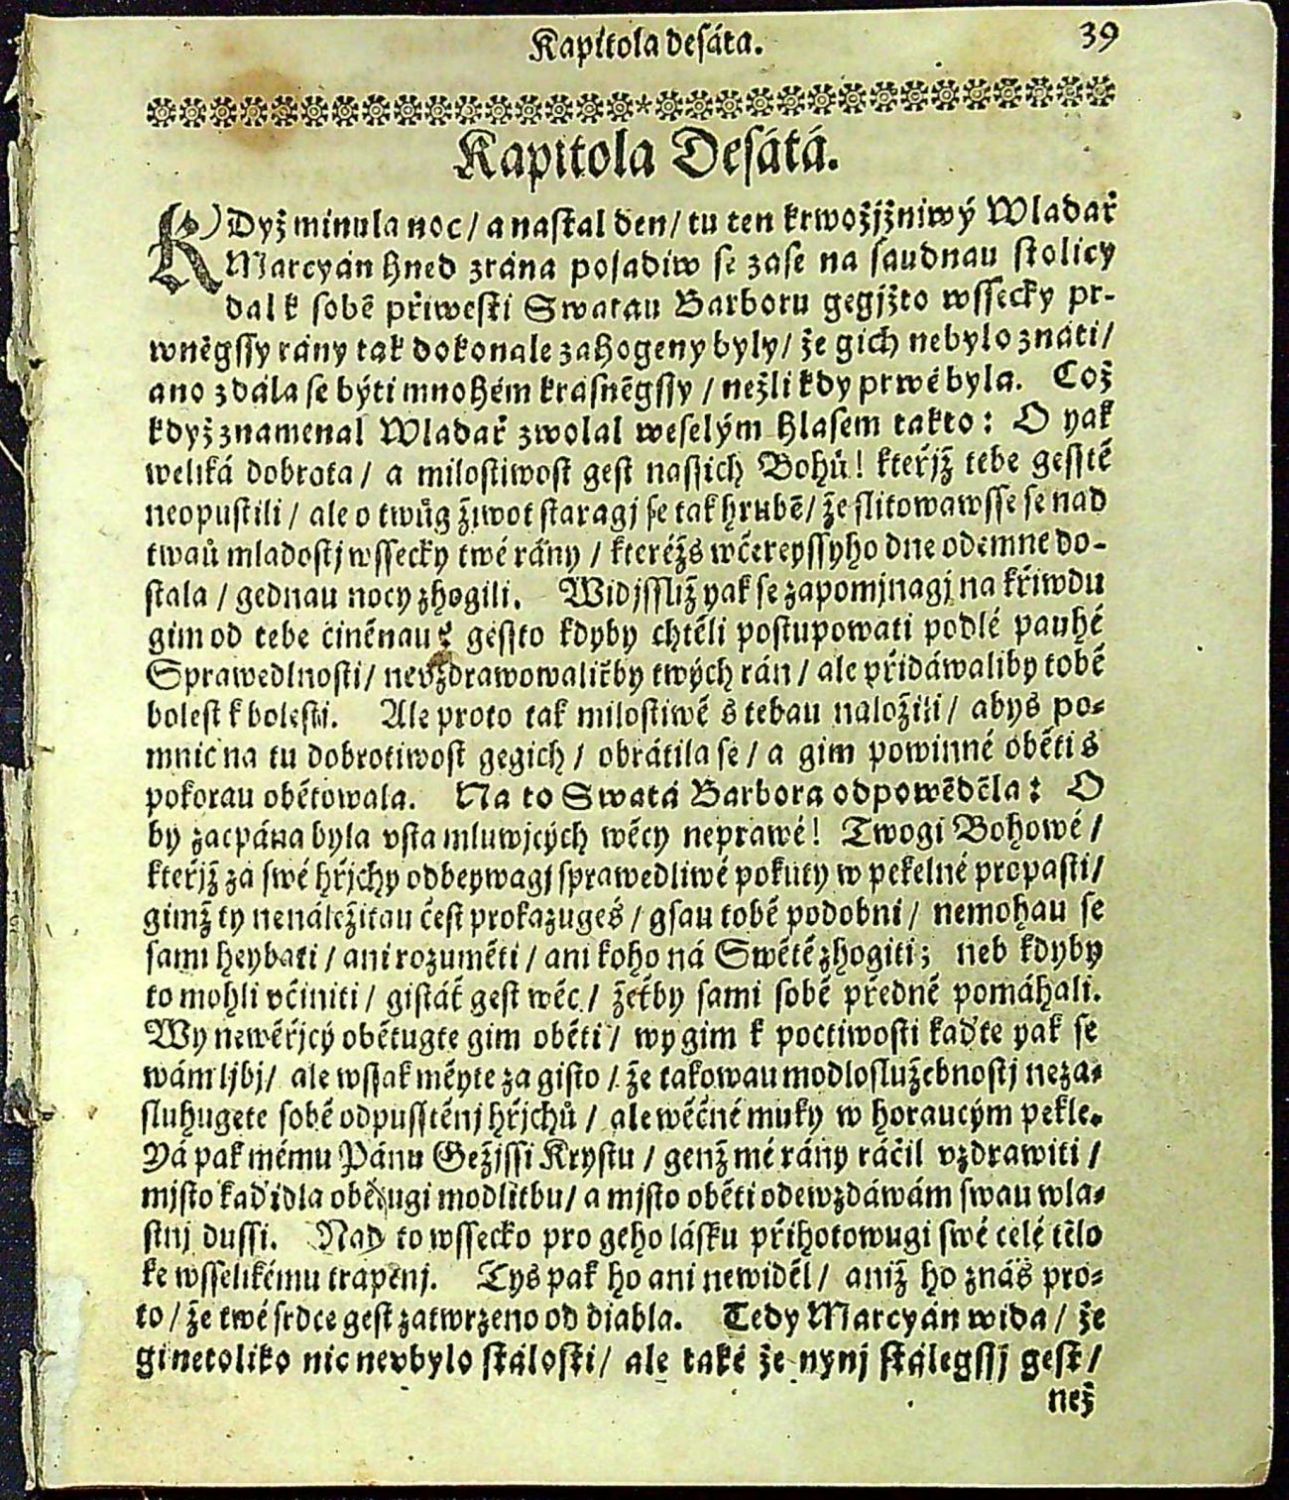 Kapitola desáta. 39
Kapitola Desátá.
KDyž minula noc / a nastal den / tu ten krwožjžniwý Wladař
Marcyán hned zrána posadiw se zase na saudnau stolicy
dal k sobě přiwesti Swatau Barboru gegjžto wssecky pr-
wněgssy rány tak dokonale zahogeny byly / že gich nebylo znáti /
ano zdála se býti mnohém krásněgssy / nežli kdy prwé byla. Což
když znamenal Wladař zwolal weselým hlasem takto: O yak
weliká dobrota / a milostiwost gest nassich Bohů! kteřjž tebe gesstě
neopustili / ale o twůg žiwot staragj se tak hrubě / že slitowawsse se nad
twaů mladostj wssecky twé rány / kteréžs wčereyssyho dne odemne do-
stala / gednau nocy zhogili. Widjssliž yak se zapomjnagj na křiwdu
gim od tebe činěnau? gessto kdyby chtěli postupowati podlé pauhé
Sprawedlnosti / nevzdrawowaliťby twých rán / ale přidáwaliby tobě
bolest k bolesti. Ale proto tak milostiwě s tebau naložili / abys po-
mnic na tu dobrotiwost gegich / obrátila se / a gim powinné oběti s
pokorau obětowala. Na to Swatá Barbora odpowěděla: O
by zacpána byla vsta mluwjcých wěcy neprawé! Twogi Bohowé /
kteřjž za swé hřjchy odbeywagj sprawedliwé pokuty w pekelné propasti /
gimž ty nenáležitau čest prokazugeš / gsau tobě podobni / nemohau se
sami heybati / ani rozuměti / ani koho ná Swětě zhogiti; neb kdyby
to mohli včiniti / gistáť gest wěc / žeťby sami sobě předně pomáhali.
Wy newěřjcý obětugte gim oběti / wy gim k poctiwosti kaďte yak se
wám ljbj / ale wssak měyte za gisto / že takowau modloslužebnostj neza-
sluhugete sobě odpusstěnj hřjchů / ale wěčné muky w horaucým pekle.
Yá pak mému Pánu Gežjssi Krystu / genž mé rány ráčil vzdrawiti /
mjsto kadidla obětugi modlitbu / a mjsto oběti odewzdáwám swau wla-
stnj dussi. Nad to wssecko pro geho lásku přihotowugi swé celé tělo
ke wsselikému trápenj. Tys pak ho ani newiděl / aniž ho znáš pro-
to / že twé srdce gest zatwrzeno od diabla. Tedy Marcyán wida / že
gi netoliko nic nevbylo stálosti / ale také že nynj stálegssj gest /
než